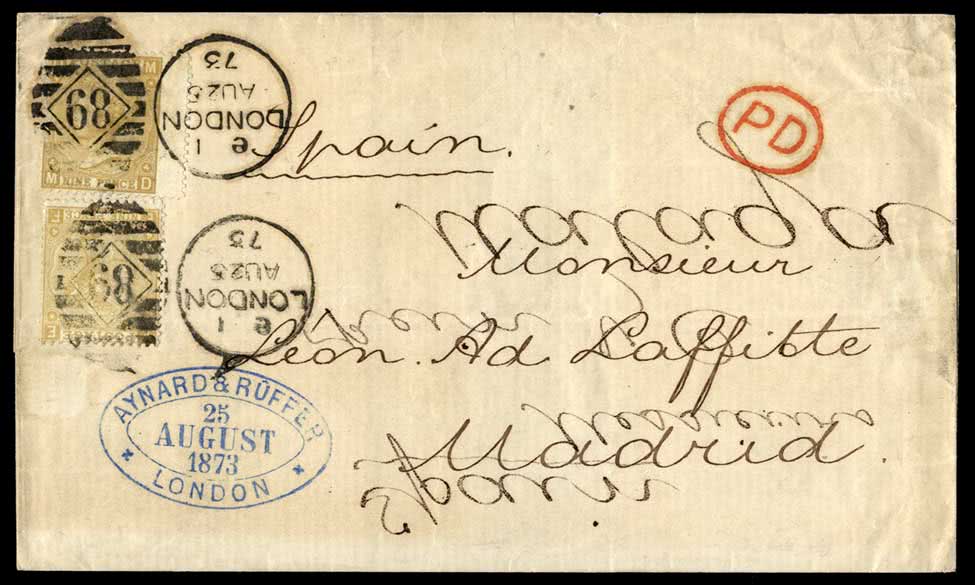 89
LONDON
AU 25
73
M
M NINE PENCE D
89
LONDON
AU 25
73
F
E
PD
Spain.
Malaga
Monsieur
Léon. Ad Laffitte
Madrid.
Spain
AYNARD & RÜFFER
25
AUGUST
1873
LONDON